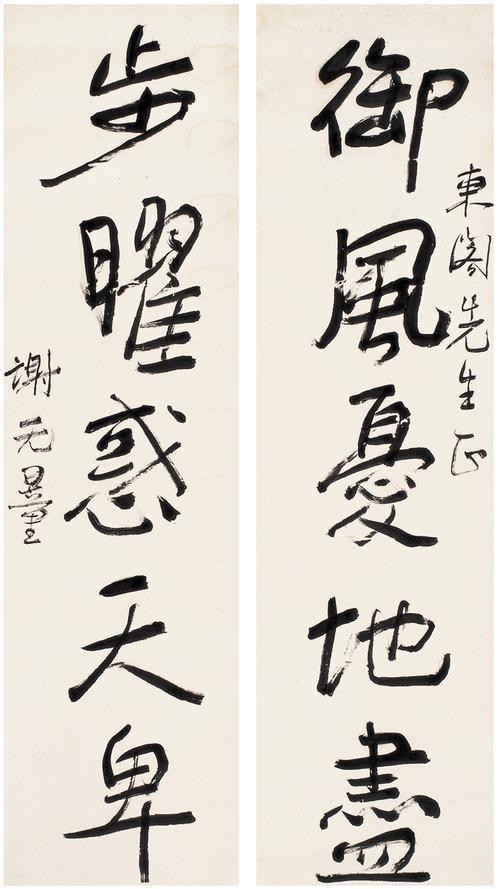 東閣先生正
御風憂地盡
步曜惑天卑
謝无量